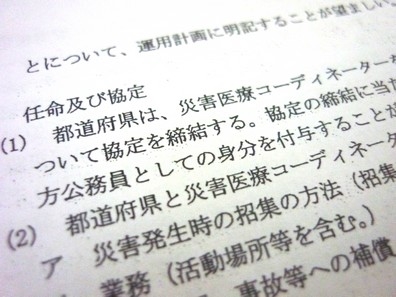 とについて、運用計画に明記することが望ましい
任命及び協定
(1) 都道府県は、災害医療コーディネーターを
ついて協定を締結する。協定の締結に当た
方公務員としての身分を付与することが
(2) 都道府県と災害医療コーディネータ
ア 災害発生時の招集の方法(招集
業務(活動場所等を含む。)
事故等への補償